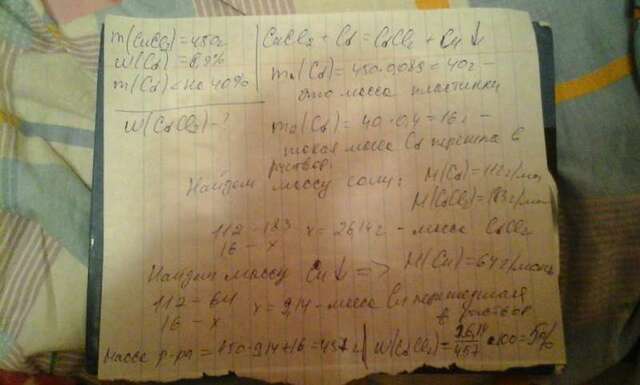 m(CuCl₂) = 450г
w(Cd) = 8,9%
m(Cd) < на 40%
w(CdCl₂) - ?
CuCl₂ + Cd = CdCl₂ + Cu ↓
m₁(Cd) = 450·0,089 = 40г -
это масса пластинки
m₂(Cd) = 40·0,4 = 16г -
такая масса Cd перешла в
раствор.
Найдем массу соли: M(Cd) = 112 г/моль
M(CdCl₂) = 183 г/моль
112 - 183
16 - x x = 26,14 г - масса CdCl₂
Найдем массу Cu ↓ => M(Cu) = 64 г/моль
112 - 64
16 - x x = 9,14 - масса Cu перешедшая
в раствор
Масса р-ра = 450 - 9,14 + 16 = 457 г | w(CdCl₂) = 26,14/457 · 100 =